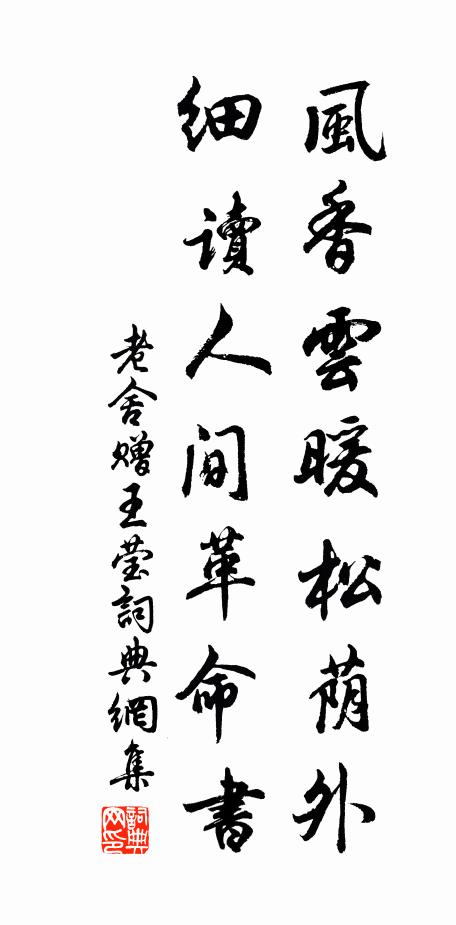 風香雲暖松荫外
細讀人间革命書
老舍赠王莹詞典網集
詞典网印